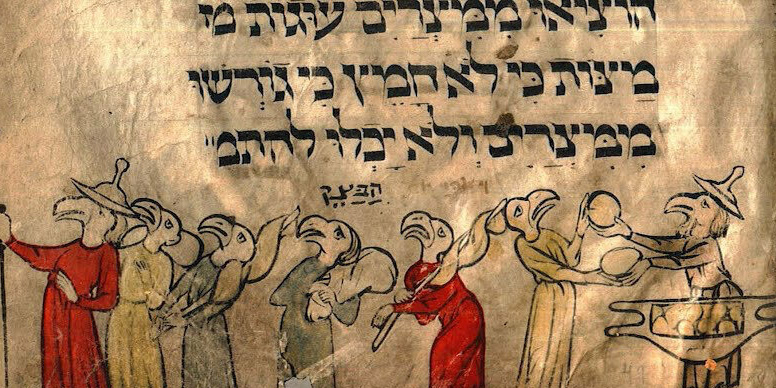 הוֹצִיאוּ מִמִּיצְרַיִם עוּגוֹת מי
מִיצּוֹת כִּי לֹא חָמֵיץ כִּי גוֹרְשׁוּ
מִמִּיצְרַיִם וְלֹא יָכְלוּ לְהִתְמ״
הַבָּצֵק